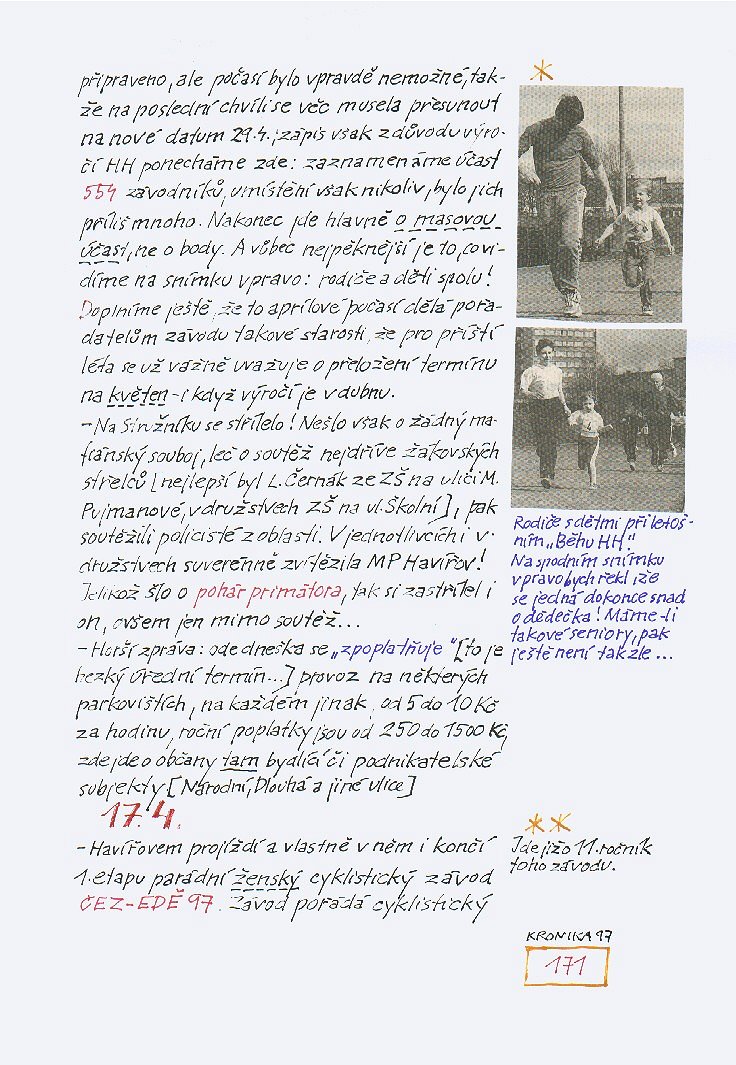 připraveno, ale počasí bylo vpravdě nemožné, tak-
že na poslední chvíli se věc musela přesunout
na nové datum 29.4., zápis však z důvodu výro-
čí HH ponecháme zde: zaznamenáme účast
554 závodníků, umístění však nikoliv, bylo jich
příliš mnoho. Nakonec jde hlavně o masovou
účast, ne o body. A vůbec nejpěknější je to, co vi-
díme na snímku vpravo: rodiče a děti spolu!
Doplníme ještě, že to aprílové počasí dělá pořa-
datelům závodu takové starosti, že pro příští
léta se už vážně uvažuje o přeložení termínu
na květen - i když výročí je v dubnu.
- Na Stružníku se střílelo! Nešlo však o žádný ma-
fiánský souboj, leč o soutěž nejdříve žákovských
střelců [nejlepší byl L. Černák ze ZŠ na ulici M.
Pujmanové, v družstvech ZŠ na ul. Školní], pak
soutěžili policisté z oblasti. V jednotlivcích i v
družstvech suverénně zvítězila MP Havířov!
Jelikož šlo o pohár primátora, tak si zastřílel i
on, ovšem jen mimo soutěž...
- Horší zpráva: ode dneška se „zpoplatňuje" [to je
hezký úřední termín...] provoz na některých
parkovištích, na každém jinak, od 5 do 10 Kč
za hodinu, roční poplatky jsou od 250 do 1500 Kč,
zde jde o občany tam bydlící či podnikatelské
subjekty [Národní, Dlouhá a jiné ulice]
17.4.
- Havířovem projíždí a vlastně v něm i končí
1. etapu parádní ženský cyklistický závod
ČEZ-EDĚ 97. Závod pořádá cyklistický
*
Rodiče s dětmi při letoš-
ním „Běhu HH".
Na spodním snímku
vpravo bych řekl, že
se jedná dokonce snad
o dědečka! Máme-li
takové seniory, pak
ještě není tak zle...
**
Jde již o 11. ročník
toho závodu.
KRONIKA 97
171